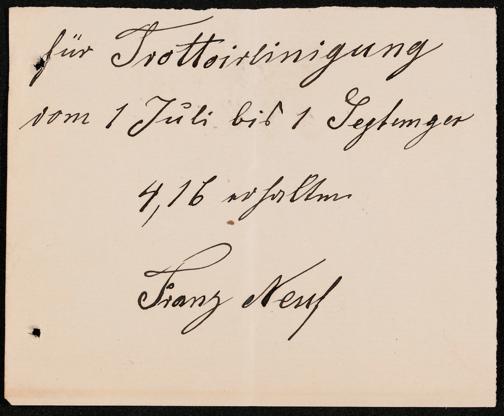 für Trottoirlinigung
vom 1 Juli bis 1 Septemger
4,16 erhalten
Franz Neuf